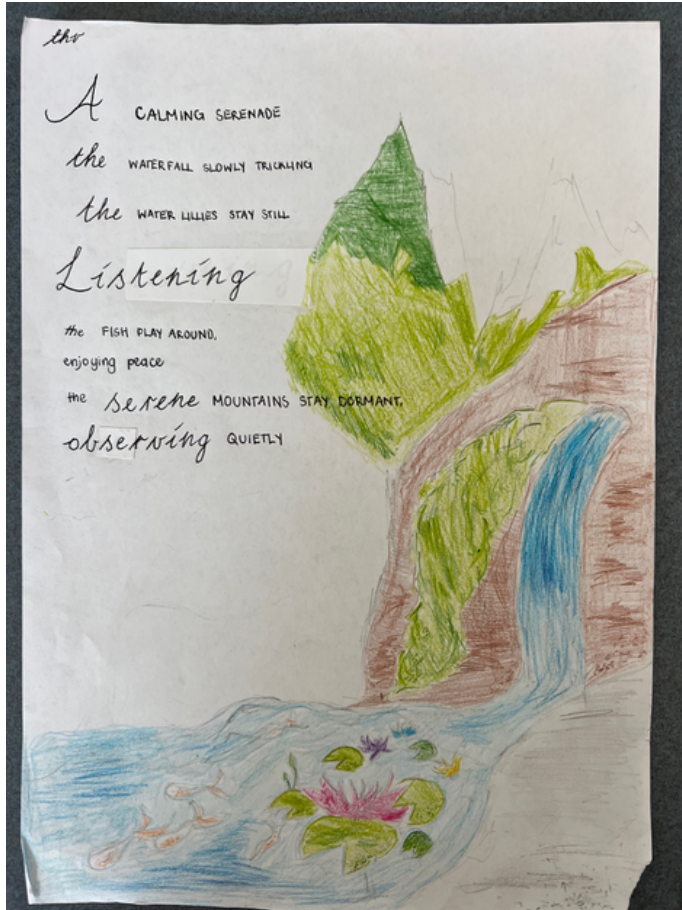 thv
A CALMING SERENADE
the WATERFALL SLOWLY TRICKLING
the WATER LILLIES STAY STILL
Listening
the FISH PLAY AROUND,
enjoying peace
the serene MOUNTAINS STAY DORMANT,
observing QUIETLY